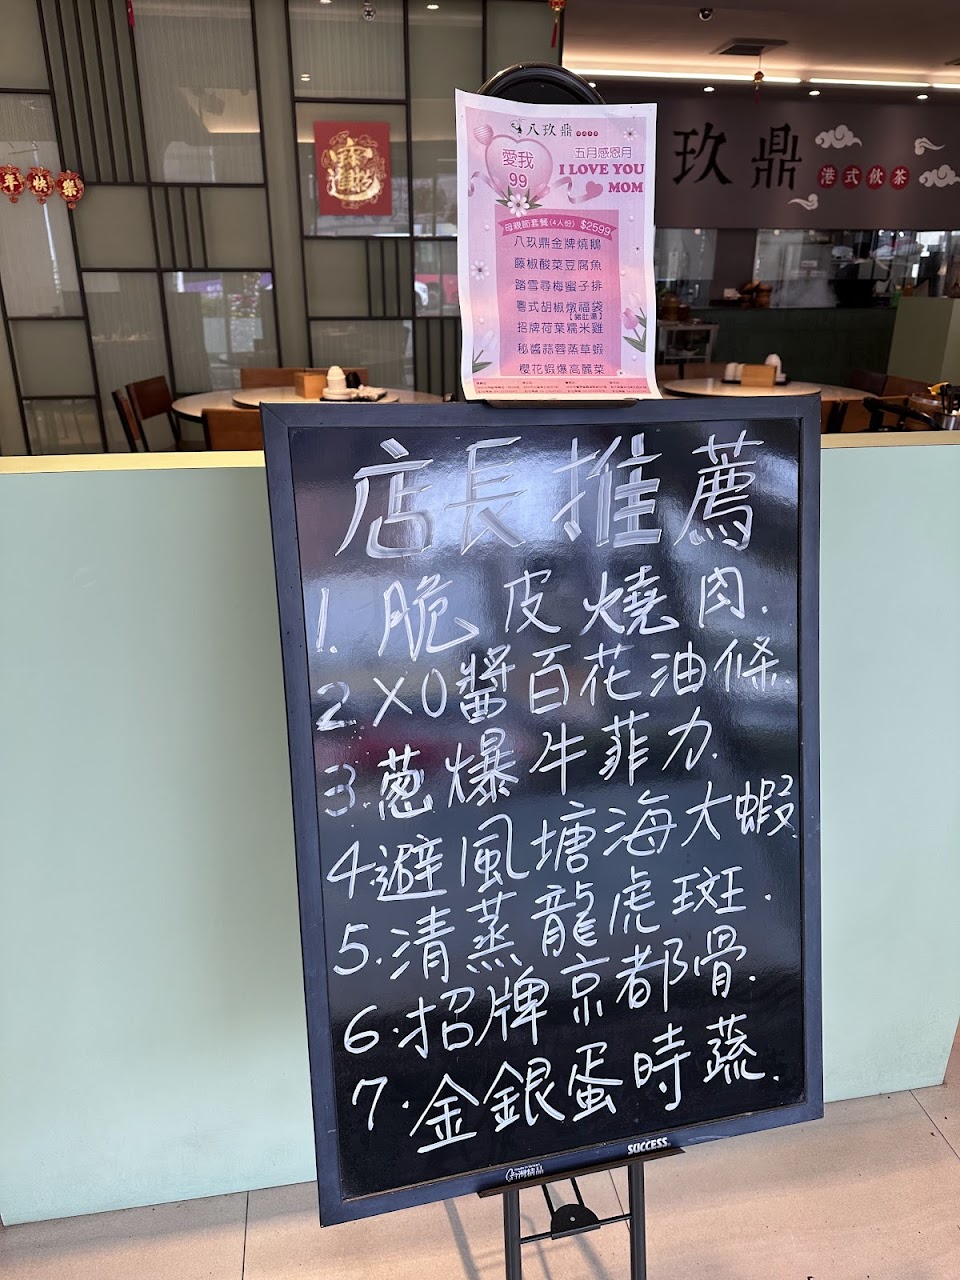 八玖鼎
五月感恩月
愛我
99
I LOVE YOU
MOM
母親節套餐(4人份) $2599
八玖鼎金牌燒鵝
藤椒酸菜豆腐魚
踏雪尋梅蜜子排
粵式胡椒燉福袋
【豬肚湯】
招牌荷葉糯米雞
秘醬蒜蓉蒸草蝦
櫻花蝦爆高麗菜
玖鼎
港式飲茶
年快樂
店長推薦
1.脆皮燒肉.
2.XO醬百花油條.
3.蔥爆牛菲力.
4.避風塘海大蝦.
5.清蒸龍虎斑.
6.招牌京都骨.
7.金銀蛋時蔬.
台灣精品
SUCCESS